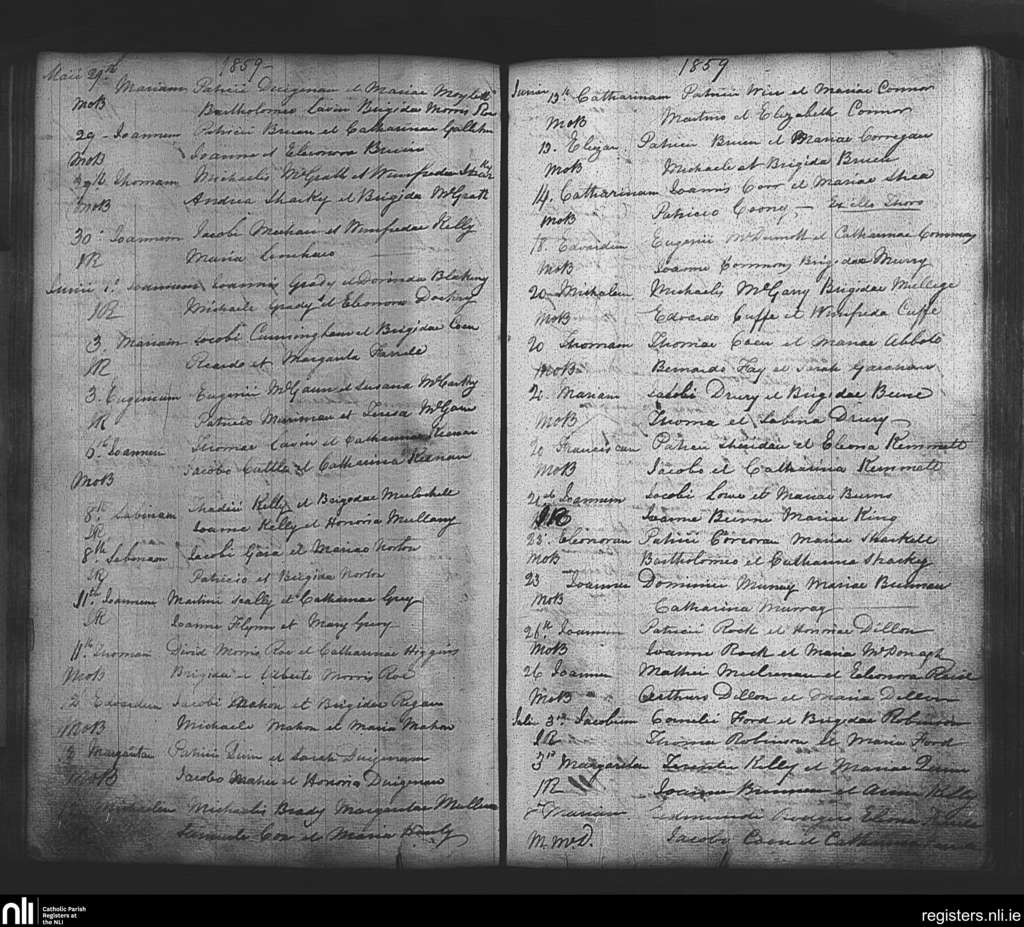 1859
Maii 29th Mariam Patricii Duigenan et Mariae Moylett
MOB Bartholomeo Lavin Brigida Morris Roe
29 - Joannem Patricii Bruen et Catharinae
MOB Joanne et Eleonora Bruen
29th Thomam Michaelis McGrath et Winifredae
MOB Andrea Sharky et Brigida McGrath
30 Joannem Jacobi Meehan et Winifredae Kelly
JR Maria
Junii 1o Joannem Joannis Grady et Dorinda Blakeny
JR Michaele Grady et Eleonora Dockry
3 Mariam Jacobi Cunningham et Brigidae Coen
JR Ricardo et Margarita Farrell
3. Eugenium Eugenii McGann et Susana McCarthy
JR Patricio et Teresa McGann
6th Joannem Thomae Lavin et Catharinae Keenan
MOB Jacobo Cuttle et Catharina Keenan
8th Sabinam Thadii Kelly et Brigidae
JR Joanne Kelly et Honoria Mullany
8th Sabinam Jacobi Gara et Mariae Norton
JR Patricio et Brigida Norton
11th Joannem Martini Scally et Catharinae Grey
JR Joanne Flynn et Mary Grey
11th Thomam David Morris Roe et Catharinae Higgins
MOB Brigida et Alberto Morris Roe
12 Edvardum Jacobi Mahon et Brigidae Regan
MOB Michaele Mahon et Maria Mahon
Margaritam Patricii Quin et Sarah Duigenan
MOB Jacobo Maher et Honoria Duigenan
Michaelem Michaelis Brady Margaritae
Samuele Cox et Maria Hanly
1859
Junii 13th Catharinam Patricii Wier et Mariae Connor
MOB Martino et Elizabeth Connor
13. Elizam Patricii Bruen et Mariae Corregan
MOB Michaele et Brigida Bruen
14. Catharinam Joannis Corr et Mariae Shea
MOB Patricio Ex illo Thoro
18. Edvardum Eugenii McDermott et Catharinae Commons
MOB Joanne Commons Brigidae Murry
20 Michaelem Michaelis McGarry Brigidae
MOB Edvardo Cuffe et Winifreda Cuffe
20 Thomam Thomae Coen et Mariae Abbott
MOB Bernardo Fay et Sarah
2. Mariam Jacobi Drury et Brigidae Beirne
MOB Thoma et Sabina Drury
20 Franciscam Patricii Sheridan et Eliona Kemmett
MOB Jacobo et Catharina Kemmett
Joannem Jacobi Lowe et Mariae Burns
JR Joanne Beirne Mariae King
23. Eleonoram Patricii Corcoran Mariae Sharkett
MOB Bartholomeo et Catharina Sharkey
23 Joannem Dominici Murray Mariae Brennan
MOB Catharina Murray
26th Joannem Patricii Rock et Honoriae Dillon
MOB Joanne Rock et Maria McDonagh
26 Joannem Mathei et Eleonora
MOB Arthuro Dillon et Maria Dillon
Julii 3rd Jacobum Cornelii Ford et Brigidae Robinson
JR Thoma Robinson et Maria Ford
3rd Margaritam Kelly et Mariae
JR Joanne Brennan et Anna Kelly
Mariam Edmundi
M. McD. Jacobo Coen et Catharina
nli
Catholic Parish
Registers at
the NLI
registers.nli.ie